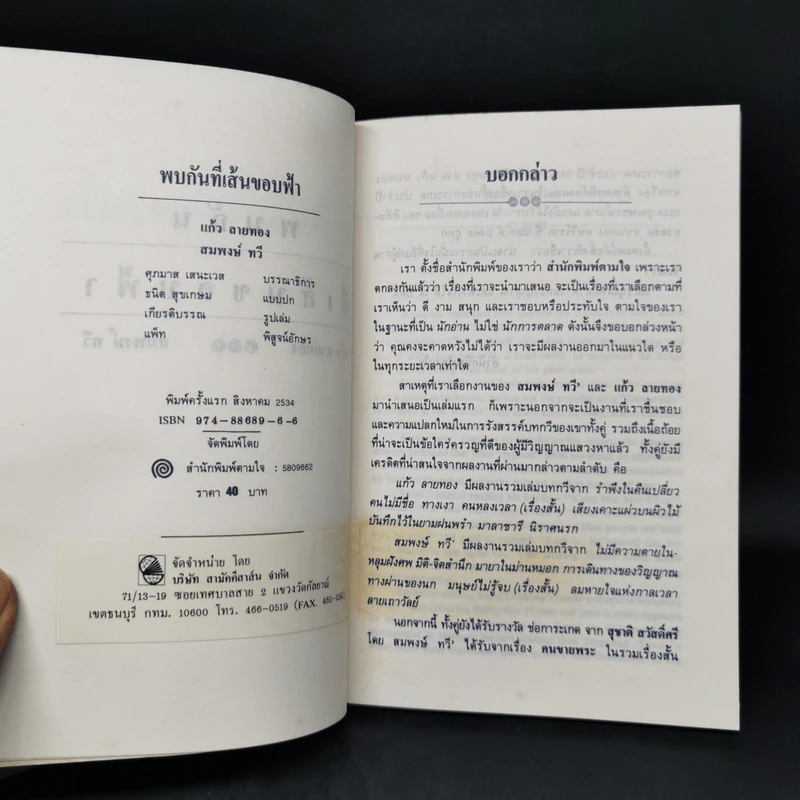 พบกันที่เส้นขอบฟ้า
แก้ว ลายทอง
สมพงษ์ ทวี
ศุภมาส เสนะเวส บรรณาธิการ
ธนิต สุขเกษม แบบปก
เกียรติบรรณ รูปเล่ม
แพ็ท พิสูจน์อักษร
พิมพ์ครั้งแรก สิงหาคม 2534
ISBN 974-88689-6-6
จัดพิมพ์โดย
สำนักพิมพ์ตามใจ : 5809662
ราคา 40 บาท
จัดจำหน่าย โดย
บริษัท สามัคคีสาส์น จำกัด
71/13-19 ซอยเทศบาลสาย 2 แขวงวัดกัลยาณ์
เขตธนบุรี กทม. 10600 โทร. 466-0519 (FAX.
บอกกล่าว
เรา ตั้งชื่อสำนักพิมพ์ของเราว่า สำนักพิมพ์ตามใจ เพราะเรา
ตกลงกันแล้วว่า เรื่องที่เราจะนำมาเสนอ จะเป็นเรื่องที่เราเลือกตามที่
เราเห็นว่า ดี งาม สนุก และเราชอบหรือประทับใจ ตามใจของเรา
ในฐานะที่เป็น นักอ่าน ไม่ใช่ นักการตลาด ดังนั้นจึงขอบอกล่วงหน้า
ว่า คุณคงจะคาดหวังไม่ได้ว่า เราจะมีผลงานออกมาในแนวใด หรือ
ในทุกระยะเวลาเท่าใด
สาเหตุที่เราเลือกงานของ สมพงษ์ ทวี' และ แก้ว ลายทอง
มานำเสนอเป็นเล่มแรก ก็เพราะนอกจากจะเป็นงานที่เราชื่นชอบ
และความแปลกใหม่ในการรังสรรค์บทกวีของเขาทั้งคู่ รวมถึงเนื้อถ้อย
ที่น่าจะเป็นข้อใคร่ครวญที่ดีของผู้มีวิญญาณแสวงหาแล้ว ทั้งคู่ยังมี
เครดิตที่น่าสนใจจากผลงานที่ผ่านมากล่าวตามลำดับ คือ
แก้ว ลายทอง มีผลงานรวมเล่มบทกวีจาก รำพึงในคืนเปลี่ยว
คนไม่มีชื่อ ทางเงา คนหลงเวลา (เรื่องสั้น) เสียงเคาะแผ่วบนผิวไม้
บันทึกไว้ในยามฝนพรำ มาลาชารี นิราศนรก
สมพงษ์ ทวี' มีผลงานรวมเล่มบทกวีจาก ไม่มีความตายใน-
หลุมฝังศพ มิติ-จิตสำนึก มายาในม่านหมอก การเดินทางของวิญญาณ
ทางผ่านของนก มนุษย์ไม่รู้จบ (เรื่องสั้น) ลมหายใจแห่งกาลเวลา
ลายเถาวัลย์
นอกจากนี้ ทั้งคู่ยังได้รับรางวัล ช่อการะเกด จาก สุชาติ สวัสดิ์ศรี
โดย สมพงษ์ ทวี' ได้รับจากเรื่อง คนขายพระ ในรวมเรื่องสั้น